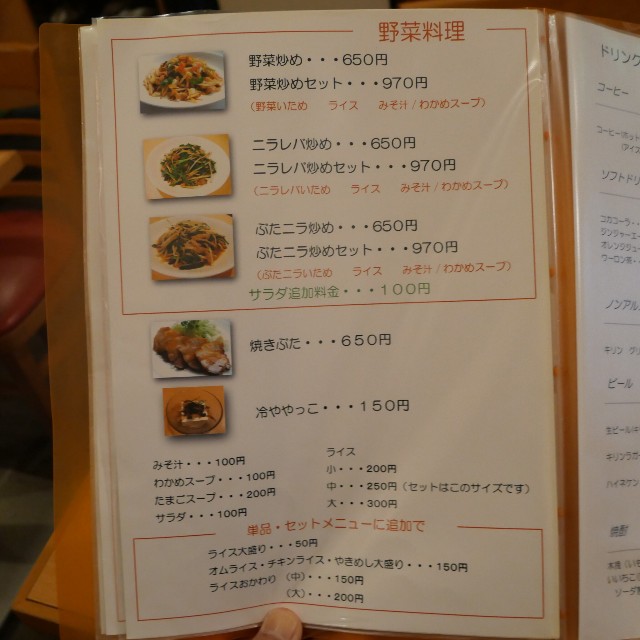 野菜料理
野菜炒め・・・650円
野菜炒めセット・・・970円
(野菜いため ライス みそ汁/わかめスープ)
ニラレバ炒め・・・650円
ニラレバ炒めセット・・・970円
(ニラレバいため ライス みそ汁/わかめスープ)
ぶたニラ炒め・・・650円
ぶたニラ炒めセット・・・970円
(ぶたニラいため ライス みそ汁/わかめスープ)
サラダ追加料金・・・100円
焼きぶた・・・650円
冷ややっこ・・・150円
みそ汁・・・100円
わかめスープ・・・100円
たまごスープ・・・200円
サラダ・・・100円
ライス
小・・・200円
中・・・250円(セットはこのサイズです)
大・・・300円
単品・セットメニューに追加で
ライス大盛り・・・50円
オムライス・チキンライス・やきめし大盛り・・・150円
ライスおかわり (中)・・・150円
(大)・・・200円
ドリンク
コーヒー
コーヒー(ホット
(アイス
ソフトドリ
コカコーラ・
ジンジャーエ
オレンジジュー
ウーロン茶・
ノンアル
キリン グリ
ビール
生ビール(キ
キリンラガー
ハイネケン
焼酎
いいちこ
ソーダ